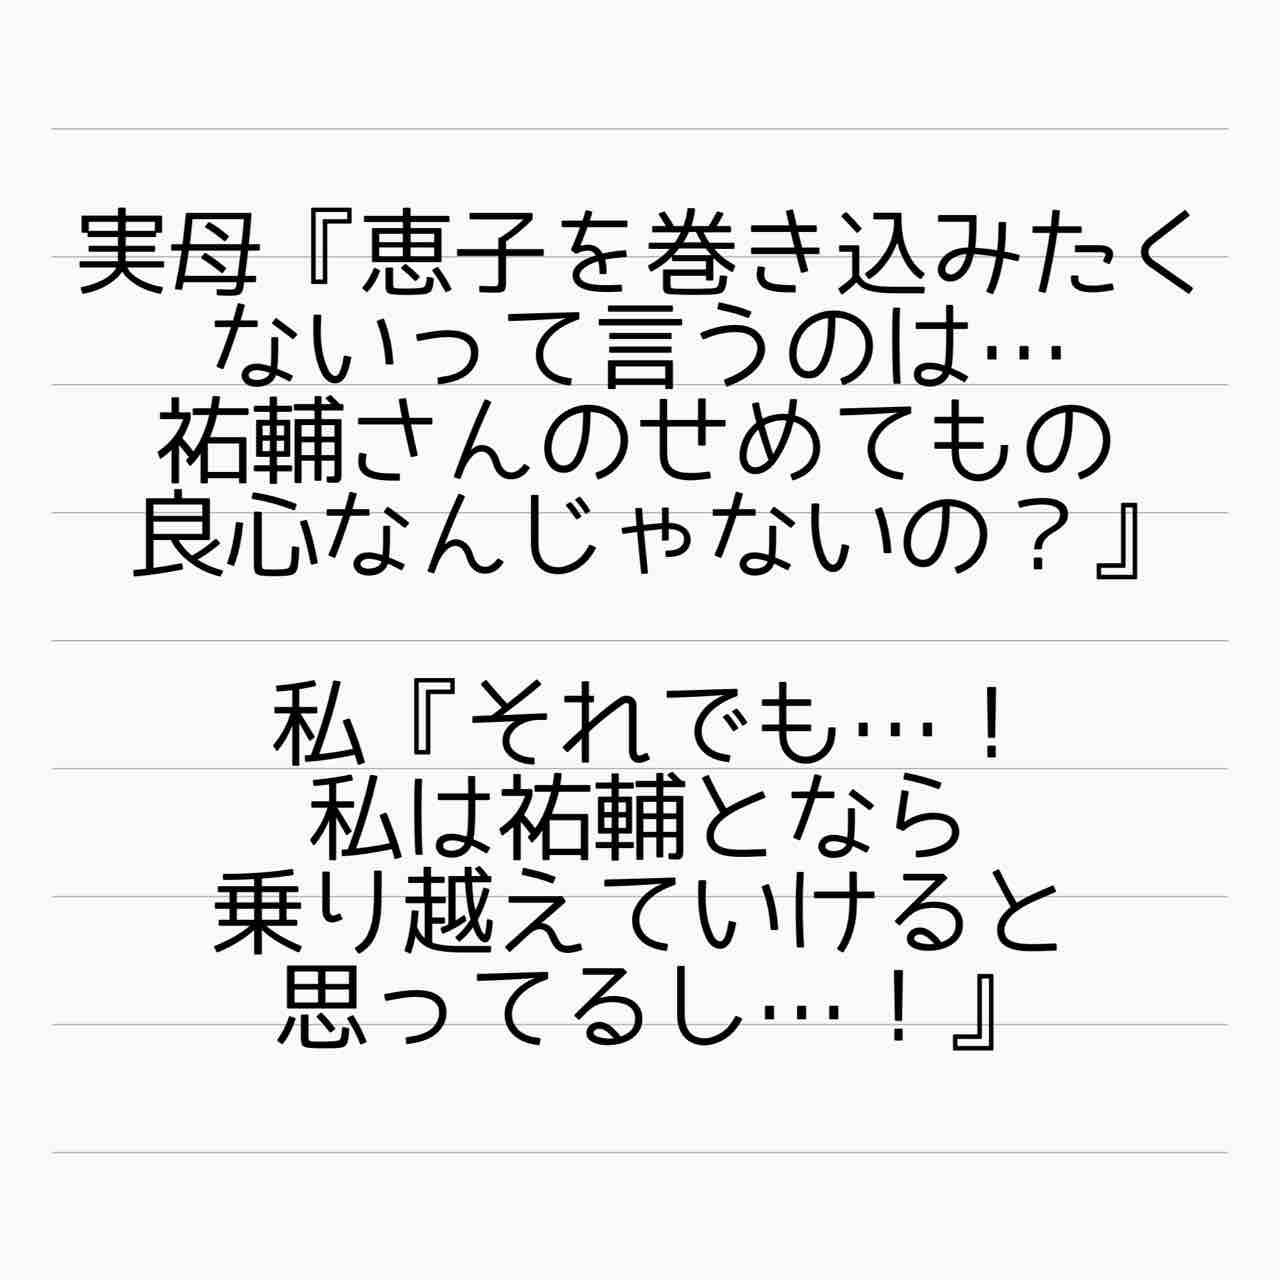 実母『恵子を巻き込みたく
ないって言うのは…
祐輔さんのせめてもの
良心なんじゃないの？』
私『それでも…！
私は祐輔となら
乗り越えていけると
思ってるし…！』